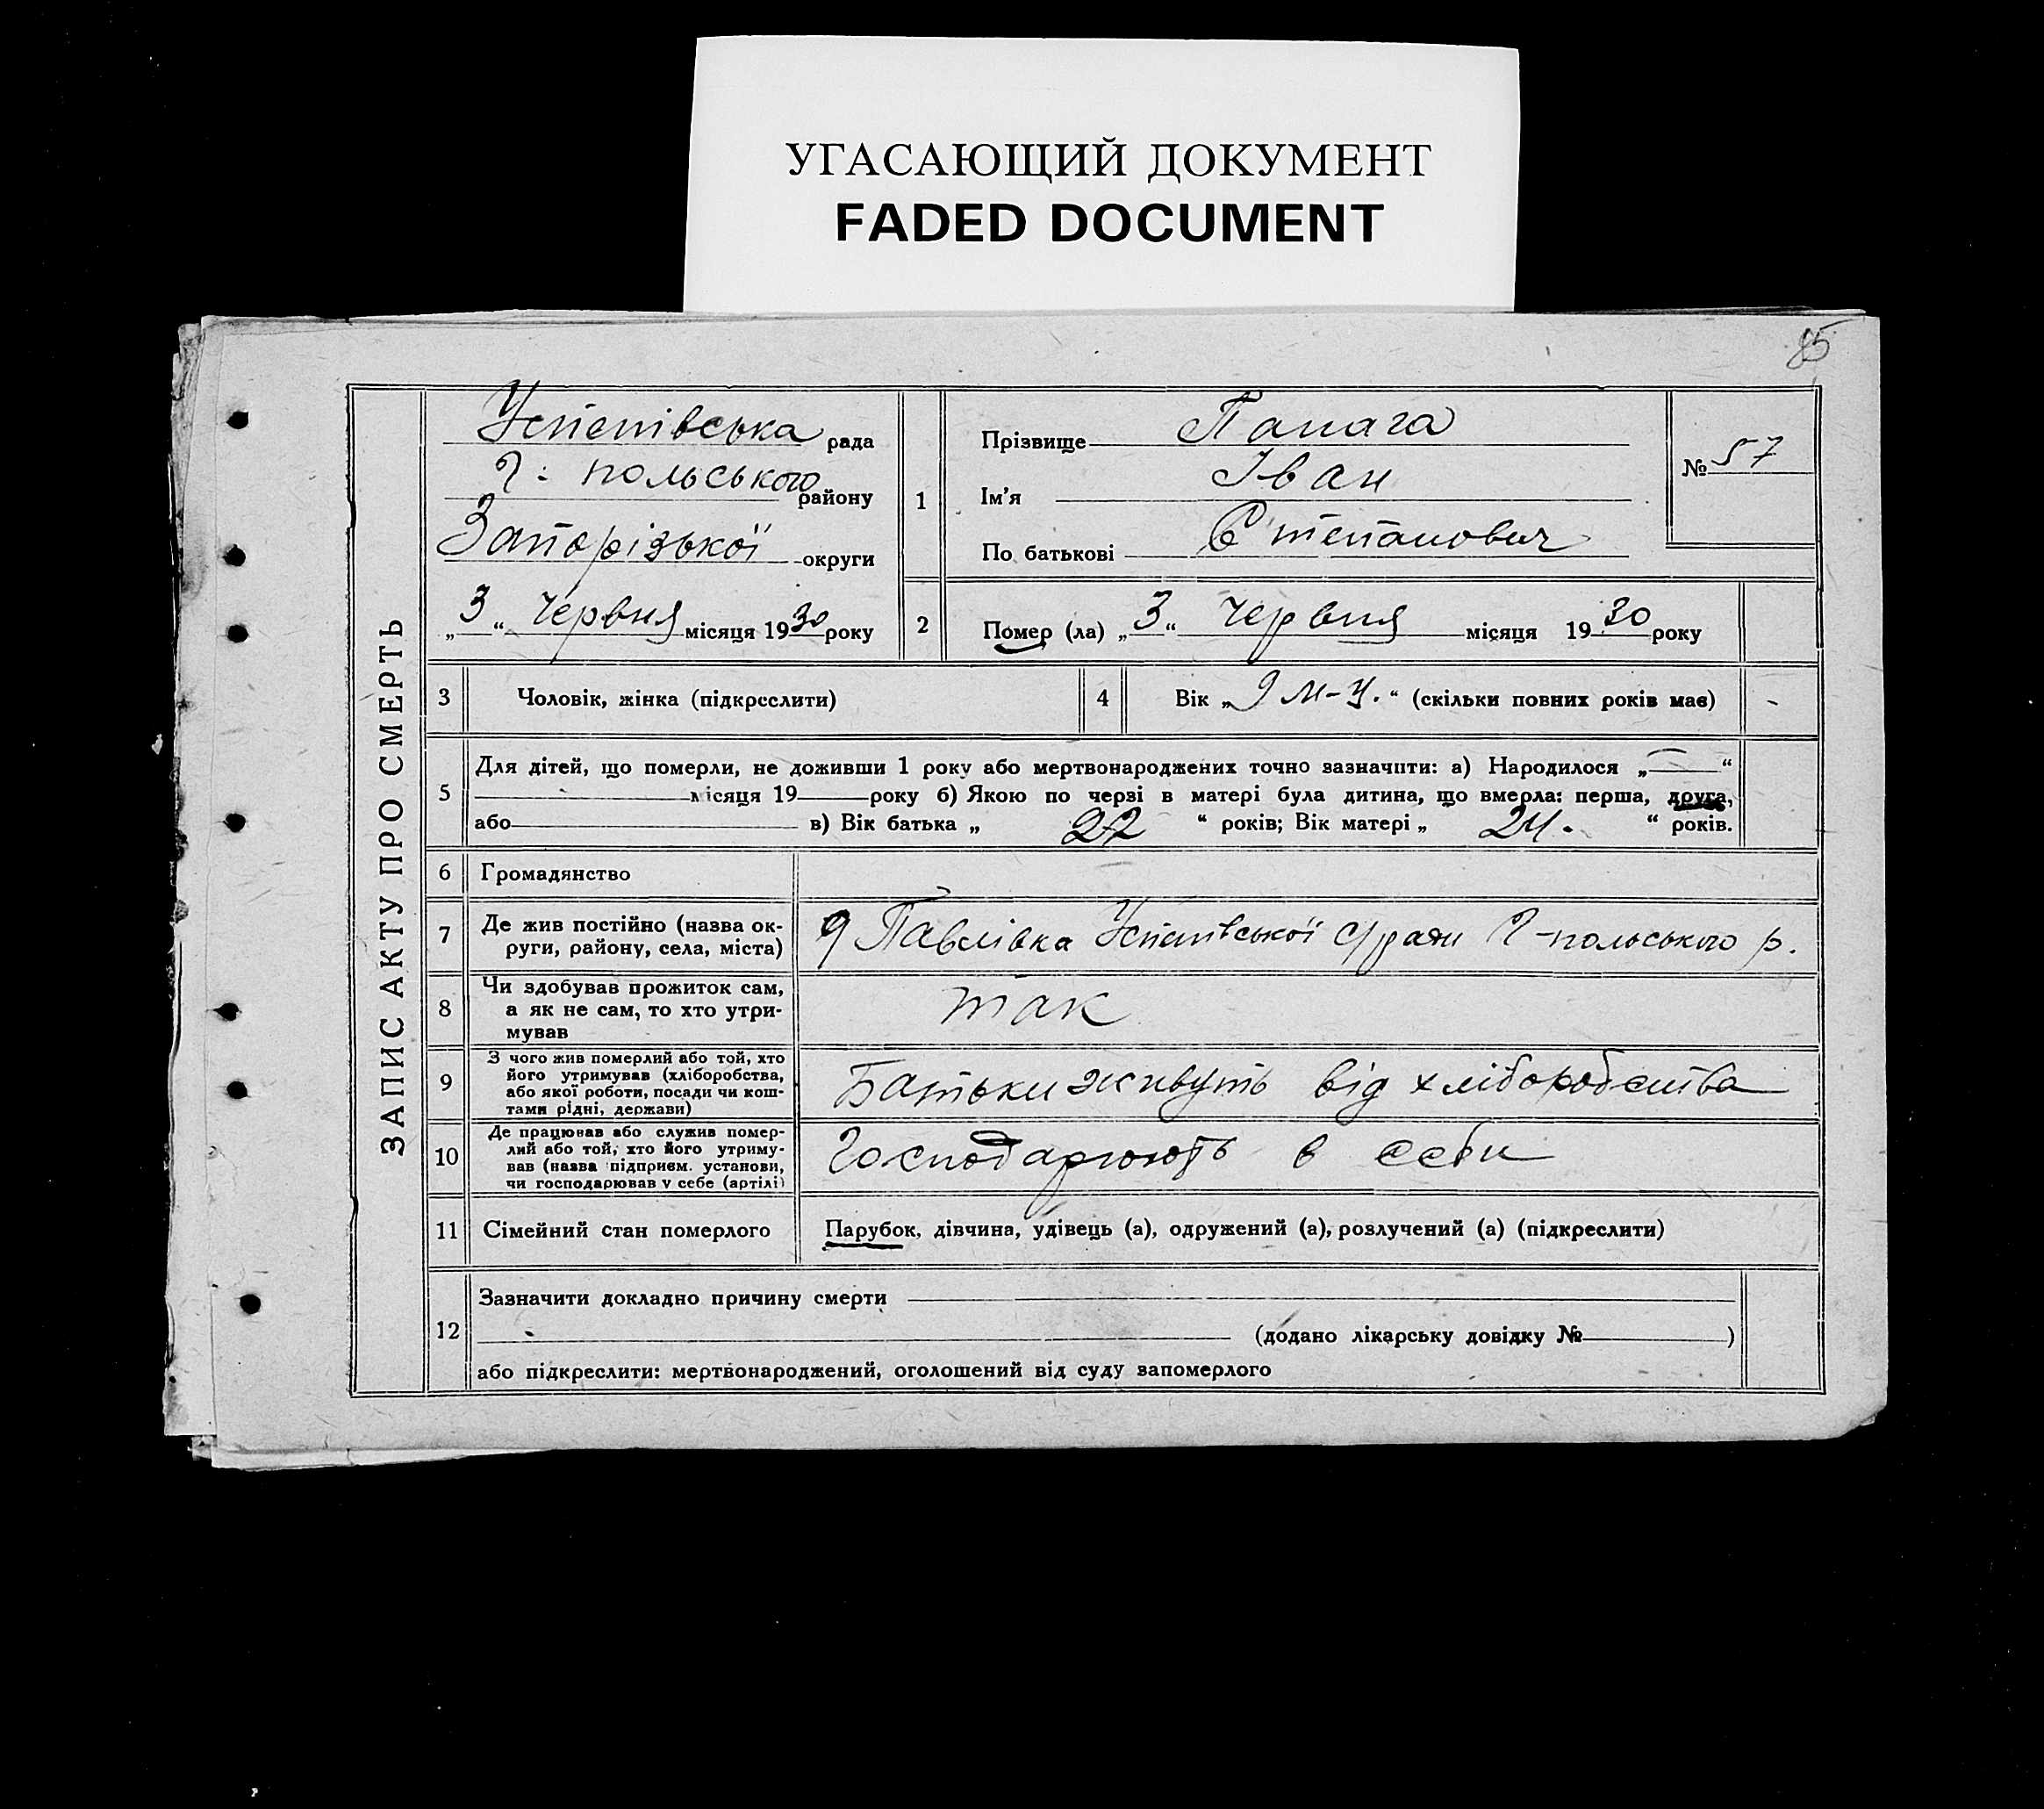 УГАСАЮЩИЙ ДОКУМЕНТ
FADED DOCUMENT
85
ЗАПИС АКТУ ПРО СМЕРТЬ
Успенівська рада
Г. польського району
Запорізької округи
„3“ Червня місяця 1930 року
1
Прізвище Панага
Ім’я Іван
По батькові Степанович
№ 57
2 Помер (ла) „3“ Червня місяця 1930 року
3 Чоловік, жінка (підкреслити)
4 Вік „9 м-ц.“ (скільки повних років має)
5 Для дітей, що померли, не доживши 1 року або мертвонароджених точно зазначити: а) Народилося „—“
місяця 19 року б) Якою по черзі в матері була дитина, що вмерла: перша, друга,
або в) Вік батька „ 22 “ років; Вік матері „ 24. “ років.
6 Громадянство
7 Де жив постійно (назва ок-
руги, району, села, міста)
Павлівка Успенівської с/ради Г-польського р.
8 Чи здобував прожиток сам,
а як не сам, то хто утри-
мував
так
9 З чого жив померлий або той, хто
його утримував (хліборобства,
або якої роботи, посади чи кош-
тами рідні, держави)
Батьки живуть від хліборобства
10 Де працював або служив помер-
лий або той, хто його утриму-
вав (назва підприєм. установи,
чи господарював у себе (артілі)
Господарюють в себи
11 Сімейний стан померлого
Парубок, дівчина, удівець (а), одружений (а), розлучений (а) (підкреслити)
12 Зазначити докладно причину смерти
(додано лікарську довідку № )
або підкреслити: мертвонароджений, оголошений від суду запомерлого